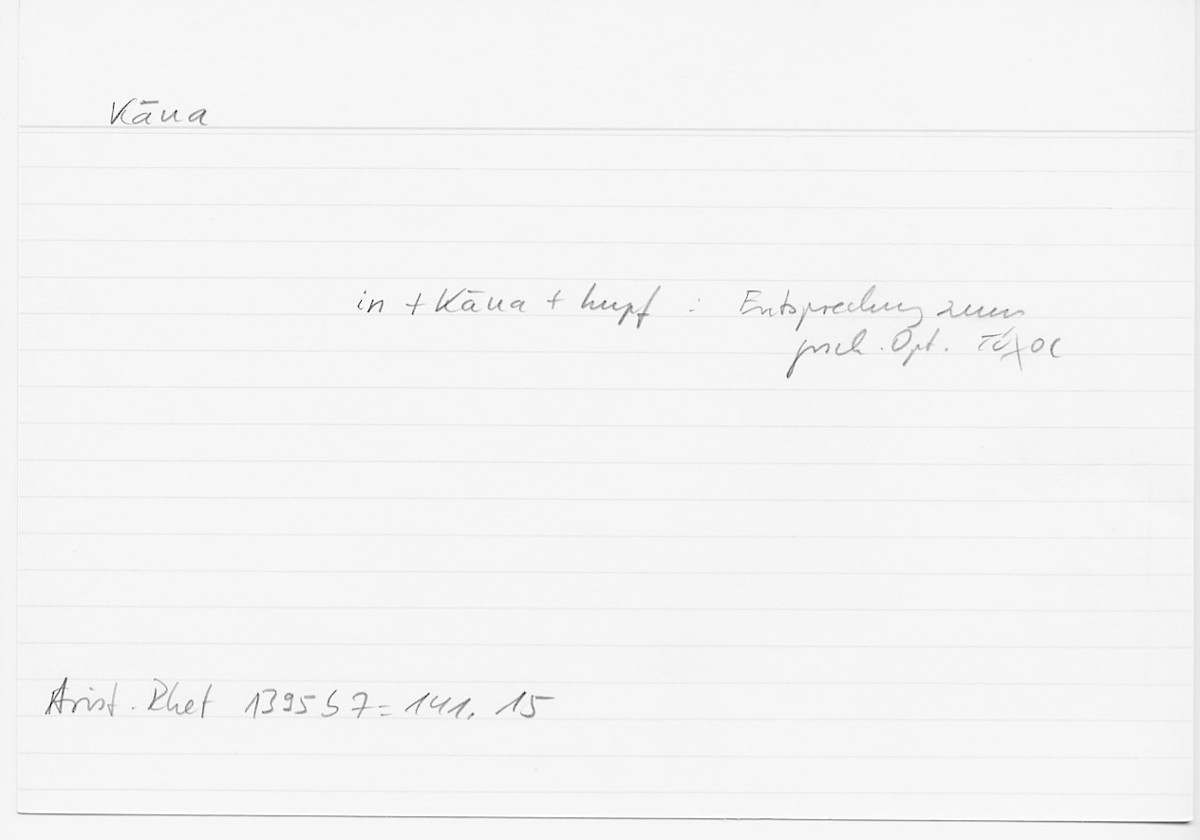 Kāna
in + Kāna + Impf : Entsprechung zum
griech. Opt. τύχοι
Arist. Rhet 1395 b 7 = 141, 15